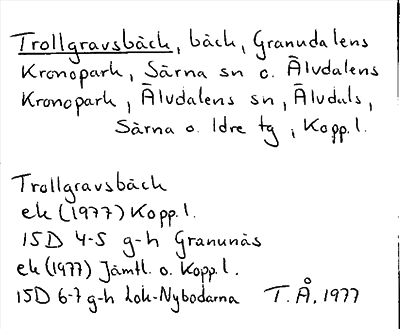 Trollgravsbäck, bäck, Granudalens
Kronopark, Särna sn o. Älvdalens
Kronopark, Älvdalens sn, Älvdals,
Särna o. Idre tg, Kopp.l.
Trollgravsbäck
ek (1977) Kopp.l.
15D 4-5 g-h Granunäs
ek (1977) Jämtl. o. Kopp.l.
15D 6-7 g-h Lok-Nybodarna T.Å. 1977